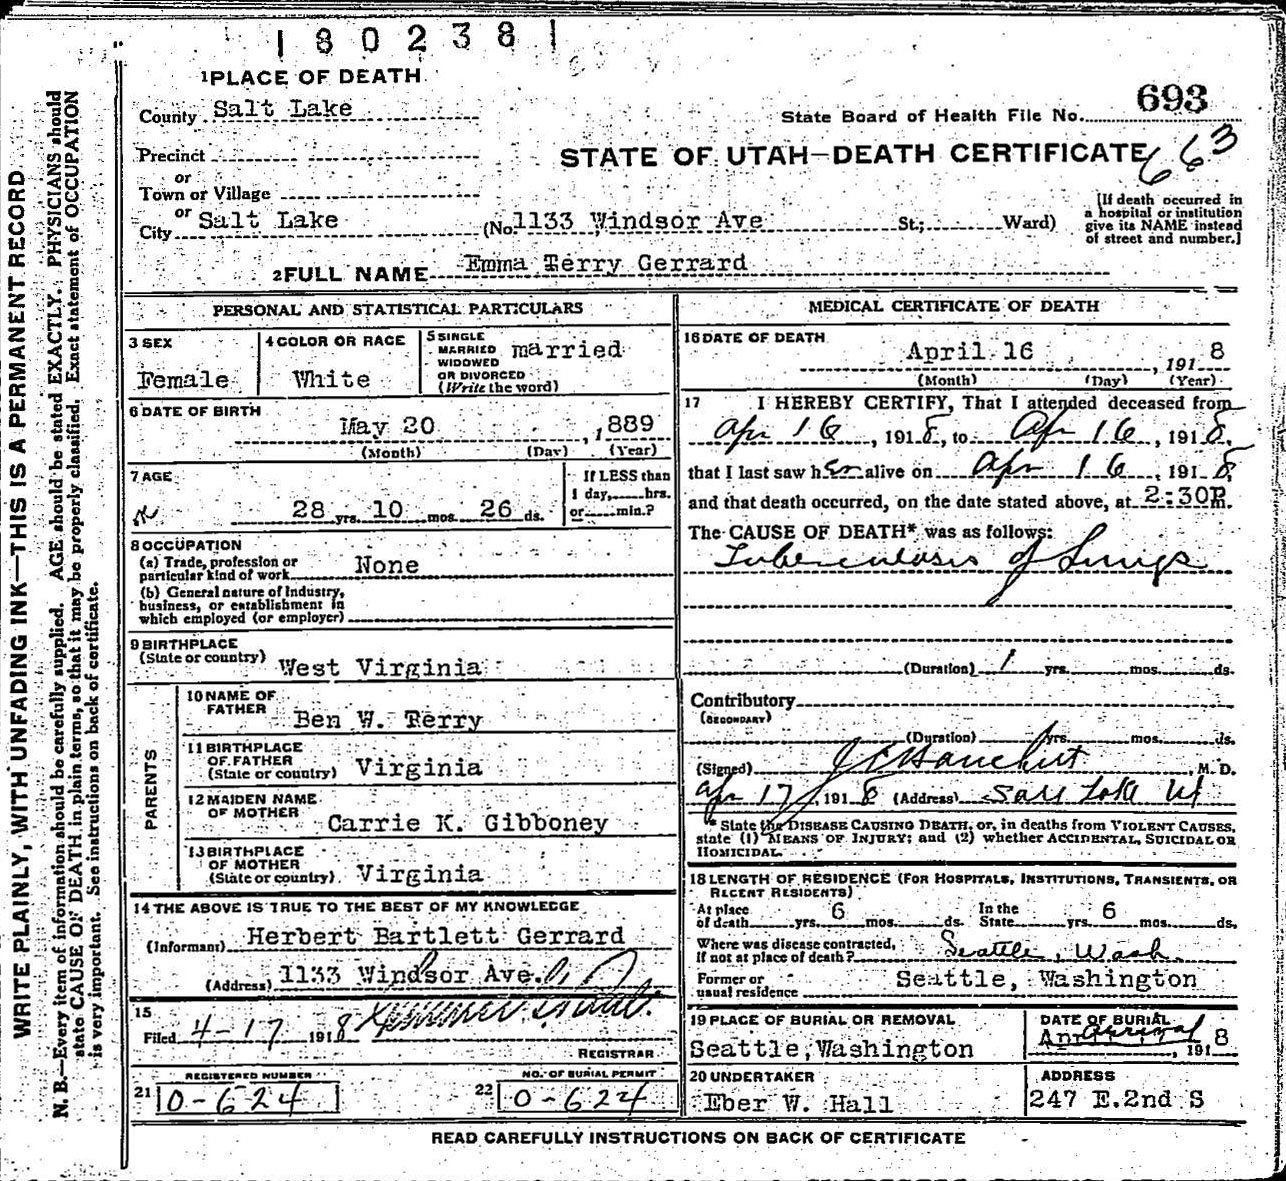 1802381
1 PLACE OF DEATH
County Salt Lake
State Board of Health File No. 693
Precinct
STATE OF UTAH—DEATH CERTIFICATE 663
or
Town or Village
or
City Salt Lake (No. 1133 Windsor Ave St.; Ward)
[If death occurred in
a hospital or institution
give its NAME instead
of street and number.]
2 FULL NAME Emma Terry Gerrard
PERSONAL AND STATISTICAL PARTICULARS
3 SEX
Female
4 COLOR OR RACE
White
5 SINGLE
MARRIED married
WIDOWED
OR DIVORCED
(Write the word)
6 DATE OF BIRTH
May 20, 1889
(Month) (Day) (Year)
7 AGE
28 yrs. 10 mos. 26 ds.
If LESS than
1 day, hrs.
or min.?
8 OCCUPATION
(a) Trade, profession or
particular kind of work None
(b) General nature of Industry,
business, or establishment in
which employed (or employer)
9 BIRTHPLACE
(State or country) West Virginia
PARENTS
10 NAME OF
FATHER Ben W. Terry
11 BIRTHPLACE
OF FATHER
(State or country) Virginia
12 MAIDEN NAME
OF MOTHER Carrie K. Gibboney
13 BIRTHPLACE
OF MOTHER
(State or country) Virginia
14 THE ABOVE IS TRUE TO THE BEST OF MY KNOWLEDGE
(Informant) Herbert Bartlett Gerrard
(Address) 1133 Windsor Ave.
15
Filed 4-17 1918
REGISTRAR
REGISTERED NUMBER
21 0-624
NO. OF BURIAL PERMIT
22 0-624
MEDICAL CERTIFICATE OF DEATH
16 DATE OF DEATH
April 16, 1918
(Month) (Day) (Year)
17 I HEREBY CERTIFY, That I attended deceased from
Apr 16, 1918, to Apr 16, 1918,
that I last saw her alive on Apr 16, 1918,
and that death occurred, on the date stated above, at 2:30P m.
The CAUSE OF DEATH* was as follows:
Tuberculosis of Lungs
(Duration) 1 yrs. mos. ds.
Contributory
(SECONDARY)
(Duration) yrs. mos. ds.
(Signed) , M. D.
Apr 17, 1918 (Address) Salt Lake Ut
* State the DISEASE CAUSING DEATH, or, in deaths from VIOLENT CAUSES,
state (1) MEANS OF INJURY; and (2) whether ACCIDENTAL, SUICIDAL OR
HOMICIDAL.
18 LENGTH OF RESIDENCE (FOR HOSPITALS, INSTITUTIONS, TRANSIENTS, OR
RECENT RESIDENTS)
At place
of death yrs. 6 mos. ds.
In the
State yrs. 6 mos. ds.
Where was disease contracted,
if not at place of death? Seattle, Wash.
Former or
usual residence Seattle, Washington
19 PLACE OF BURIAL OR REMOVAL
Seattle, Washington
DATE OF BURIAL
Apr arrival, 1918
20 UNDERTAKER
Eber W. Hall
ADDRESS
247 E.2nd S
READ CAREFULLY INSTRUCTIONS ON BACK OF CERTIFICATE
WRITE PLAINLY, WITH UNFADING INK—THIS IS A PERMANENT RECORD
N. B.—Every item of information should be carefully supplied. AGE should be stated EXACTLY. PHYSICIANS should
state CAUSE OF DEATH in plain terms, so that it may be properly classified. Exact statement of OCCUPATION
is very important. See instructions on back of certificate.